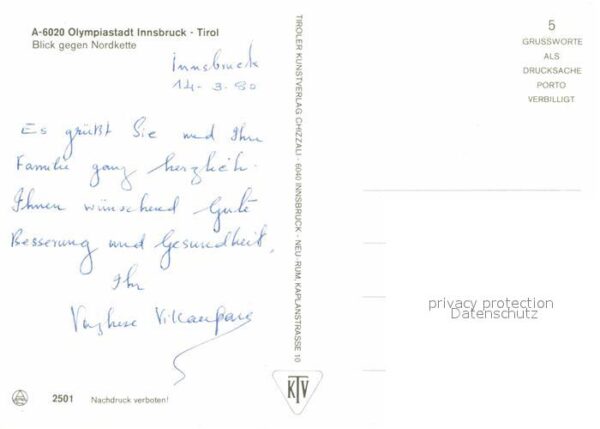 A-6020 Olympiastadt Innsbruck - Tirol
Blick gegen Nordkette
Innsbruck
14-3-80
Es grüßt Sie und Ihre
Familie ganz herzlich.
Ihnen wünschend Gute
Besserung und Gesundheit,
Ihr
TIROLER KUNSTVERLAG CHIZZALI · 6040 INNSBRUCK - NEU-RUM, KAPLANSTRASSE 10
KTV
5
GRUSSWORTE
ALS
DRUCKSACHE
PORTO
VERBILLIGT
privacy protection
Datenschutz
2501 Nachdruck verboten!